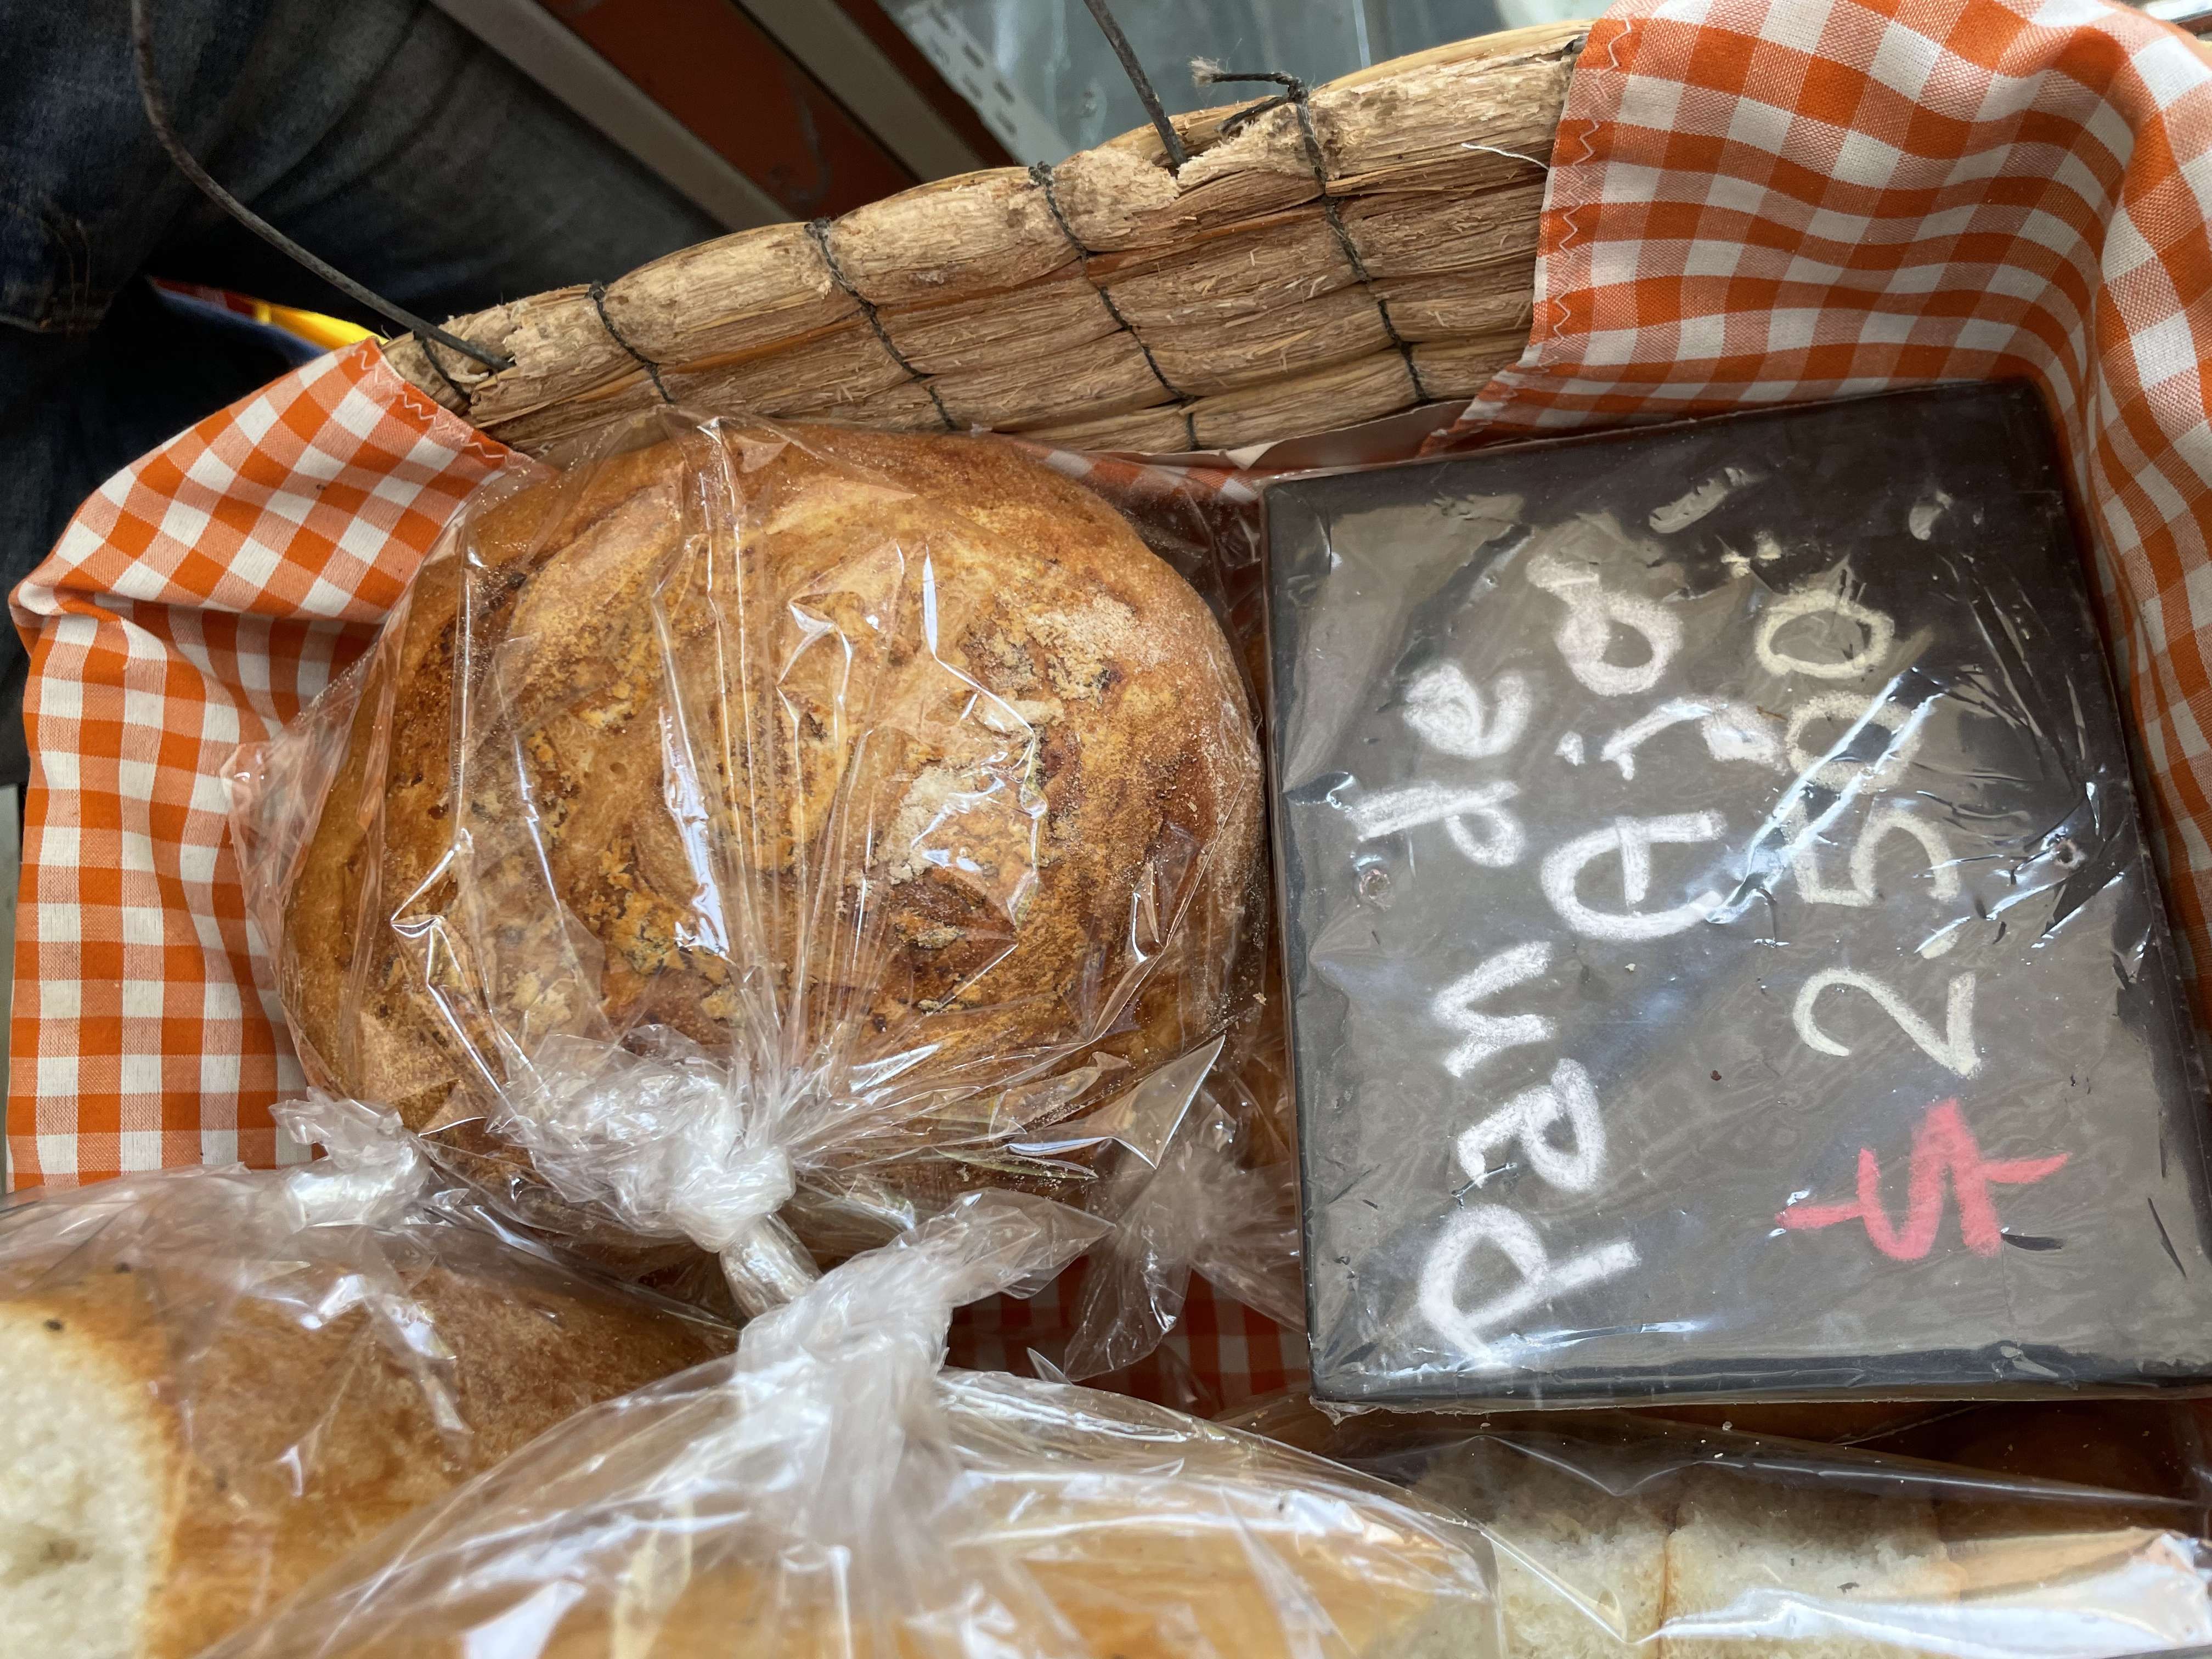 Pan de
Ajo
$ 2.500